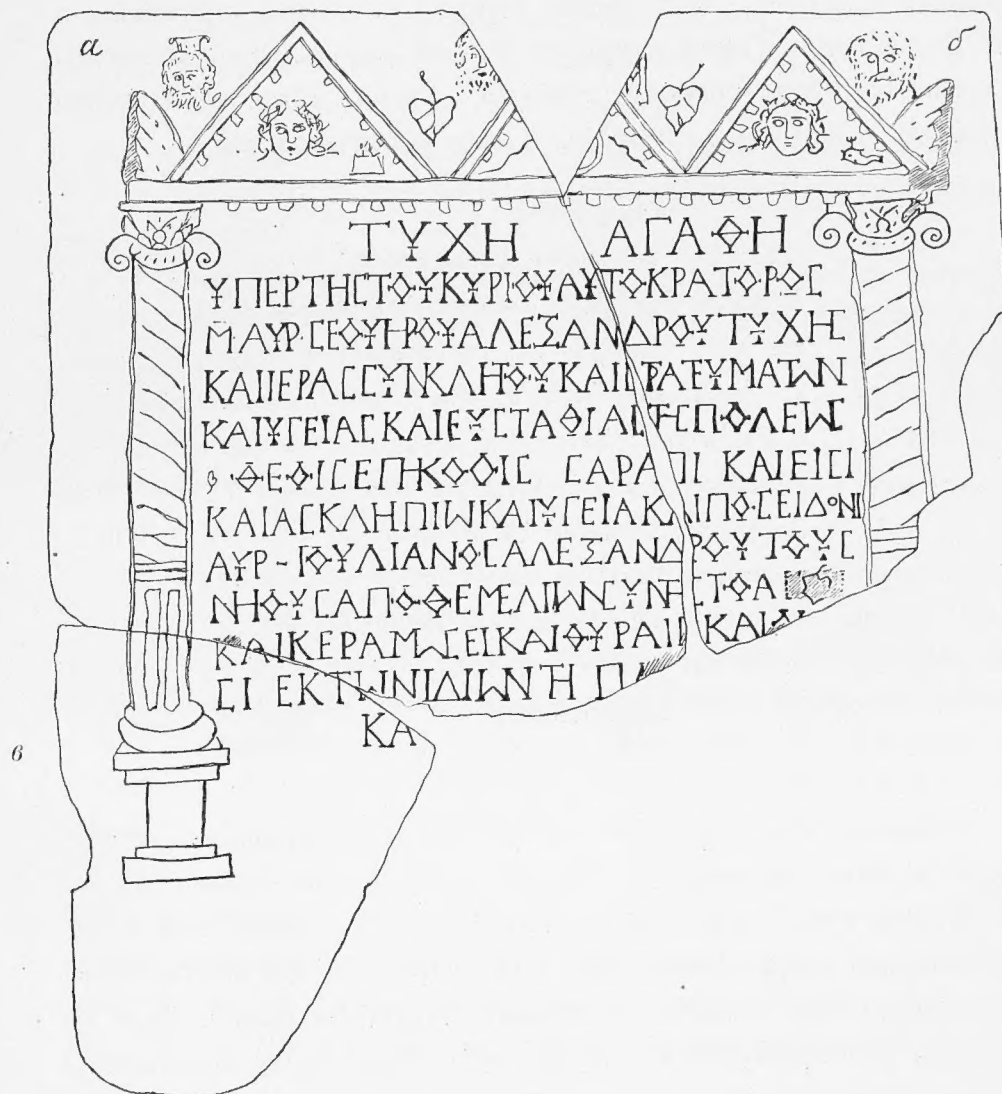 а б
ΤΥΧΗ ΑΓΑΘΗ
ΥΠΕΡΤΗCΤΟΥΚΥΡΙΟΥΑΥΤΟΚΡΑΤΟΡΟC
Μ·ΑΥΡ·CΕΟΥΗΡΟΥΑΛΕΞΑΝΔΡΟΥΤΥΧΗC
ΚΑΙΙΕΡΑCCΥΝΚΛΗΤΟΥΚΑΙCΤΡΑΤΕΥΜΑΤΩΝ
ΚΑΙΥΓΕΙΑCΚΑΙΕΥCΤΑΘΙΑCΤΗCΠΟΛΕΩC
ΘΕΟΙCΕΠΗΚΟΟΙC CΑΡΑΠΙ ΚΑΙΕΙCΙ
ΚΑΙΑCΚΛΗΠΙΩΚΑΙΥΓΕΙΑΚΑΙΠΟCΕΙΔΟΝΙ
ΑΥΡ-ΙΟΥΛΙΑΝΟCΑΛΕΞΑΝΔΡΟΥΤΟΥC
ΝΗΟΥCΑΠΟΘΕΜΕΛΙΩΝCΥΝΤΗCΤΟΑ
ΚΑΙΚΕΡΑΜΩCΕΙΚΑΙΘΥΡΑΙC ΚΑΙ
CΙ ΕΚΤΩΝΙΔΙΩΝΤΗ Π
ΚΑ
в